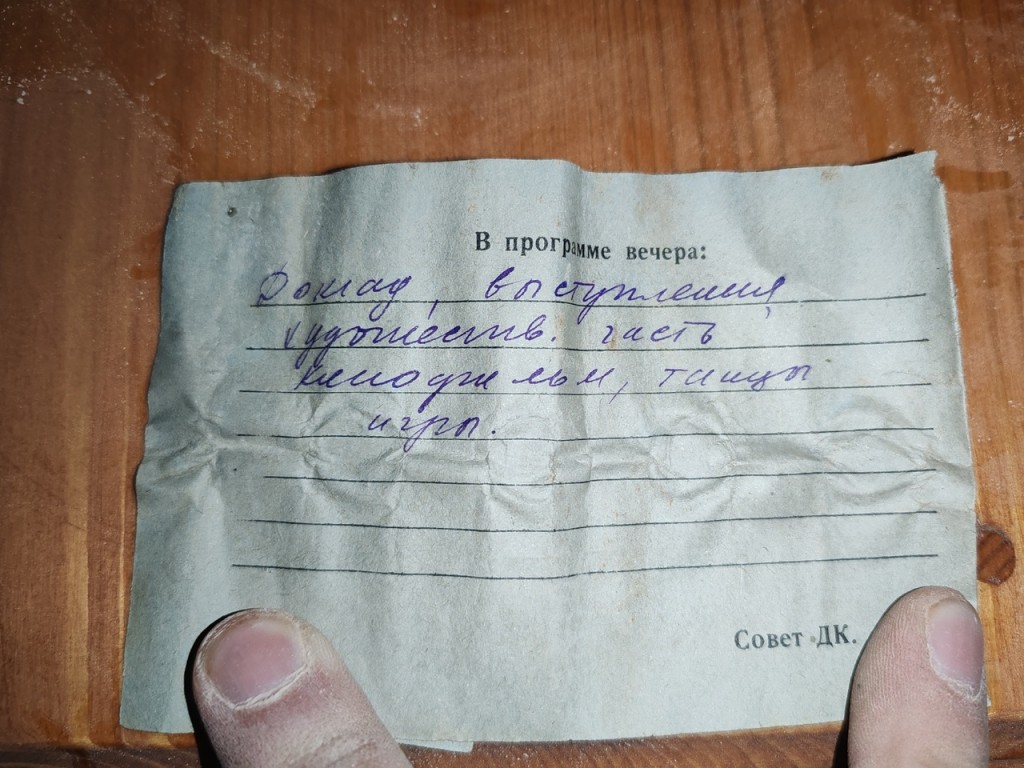 В программе вечера:
Доклад, выступления
художеств. часть
кинофильм, танцы
игры.
Совет ДК.